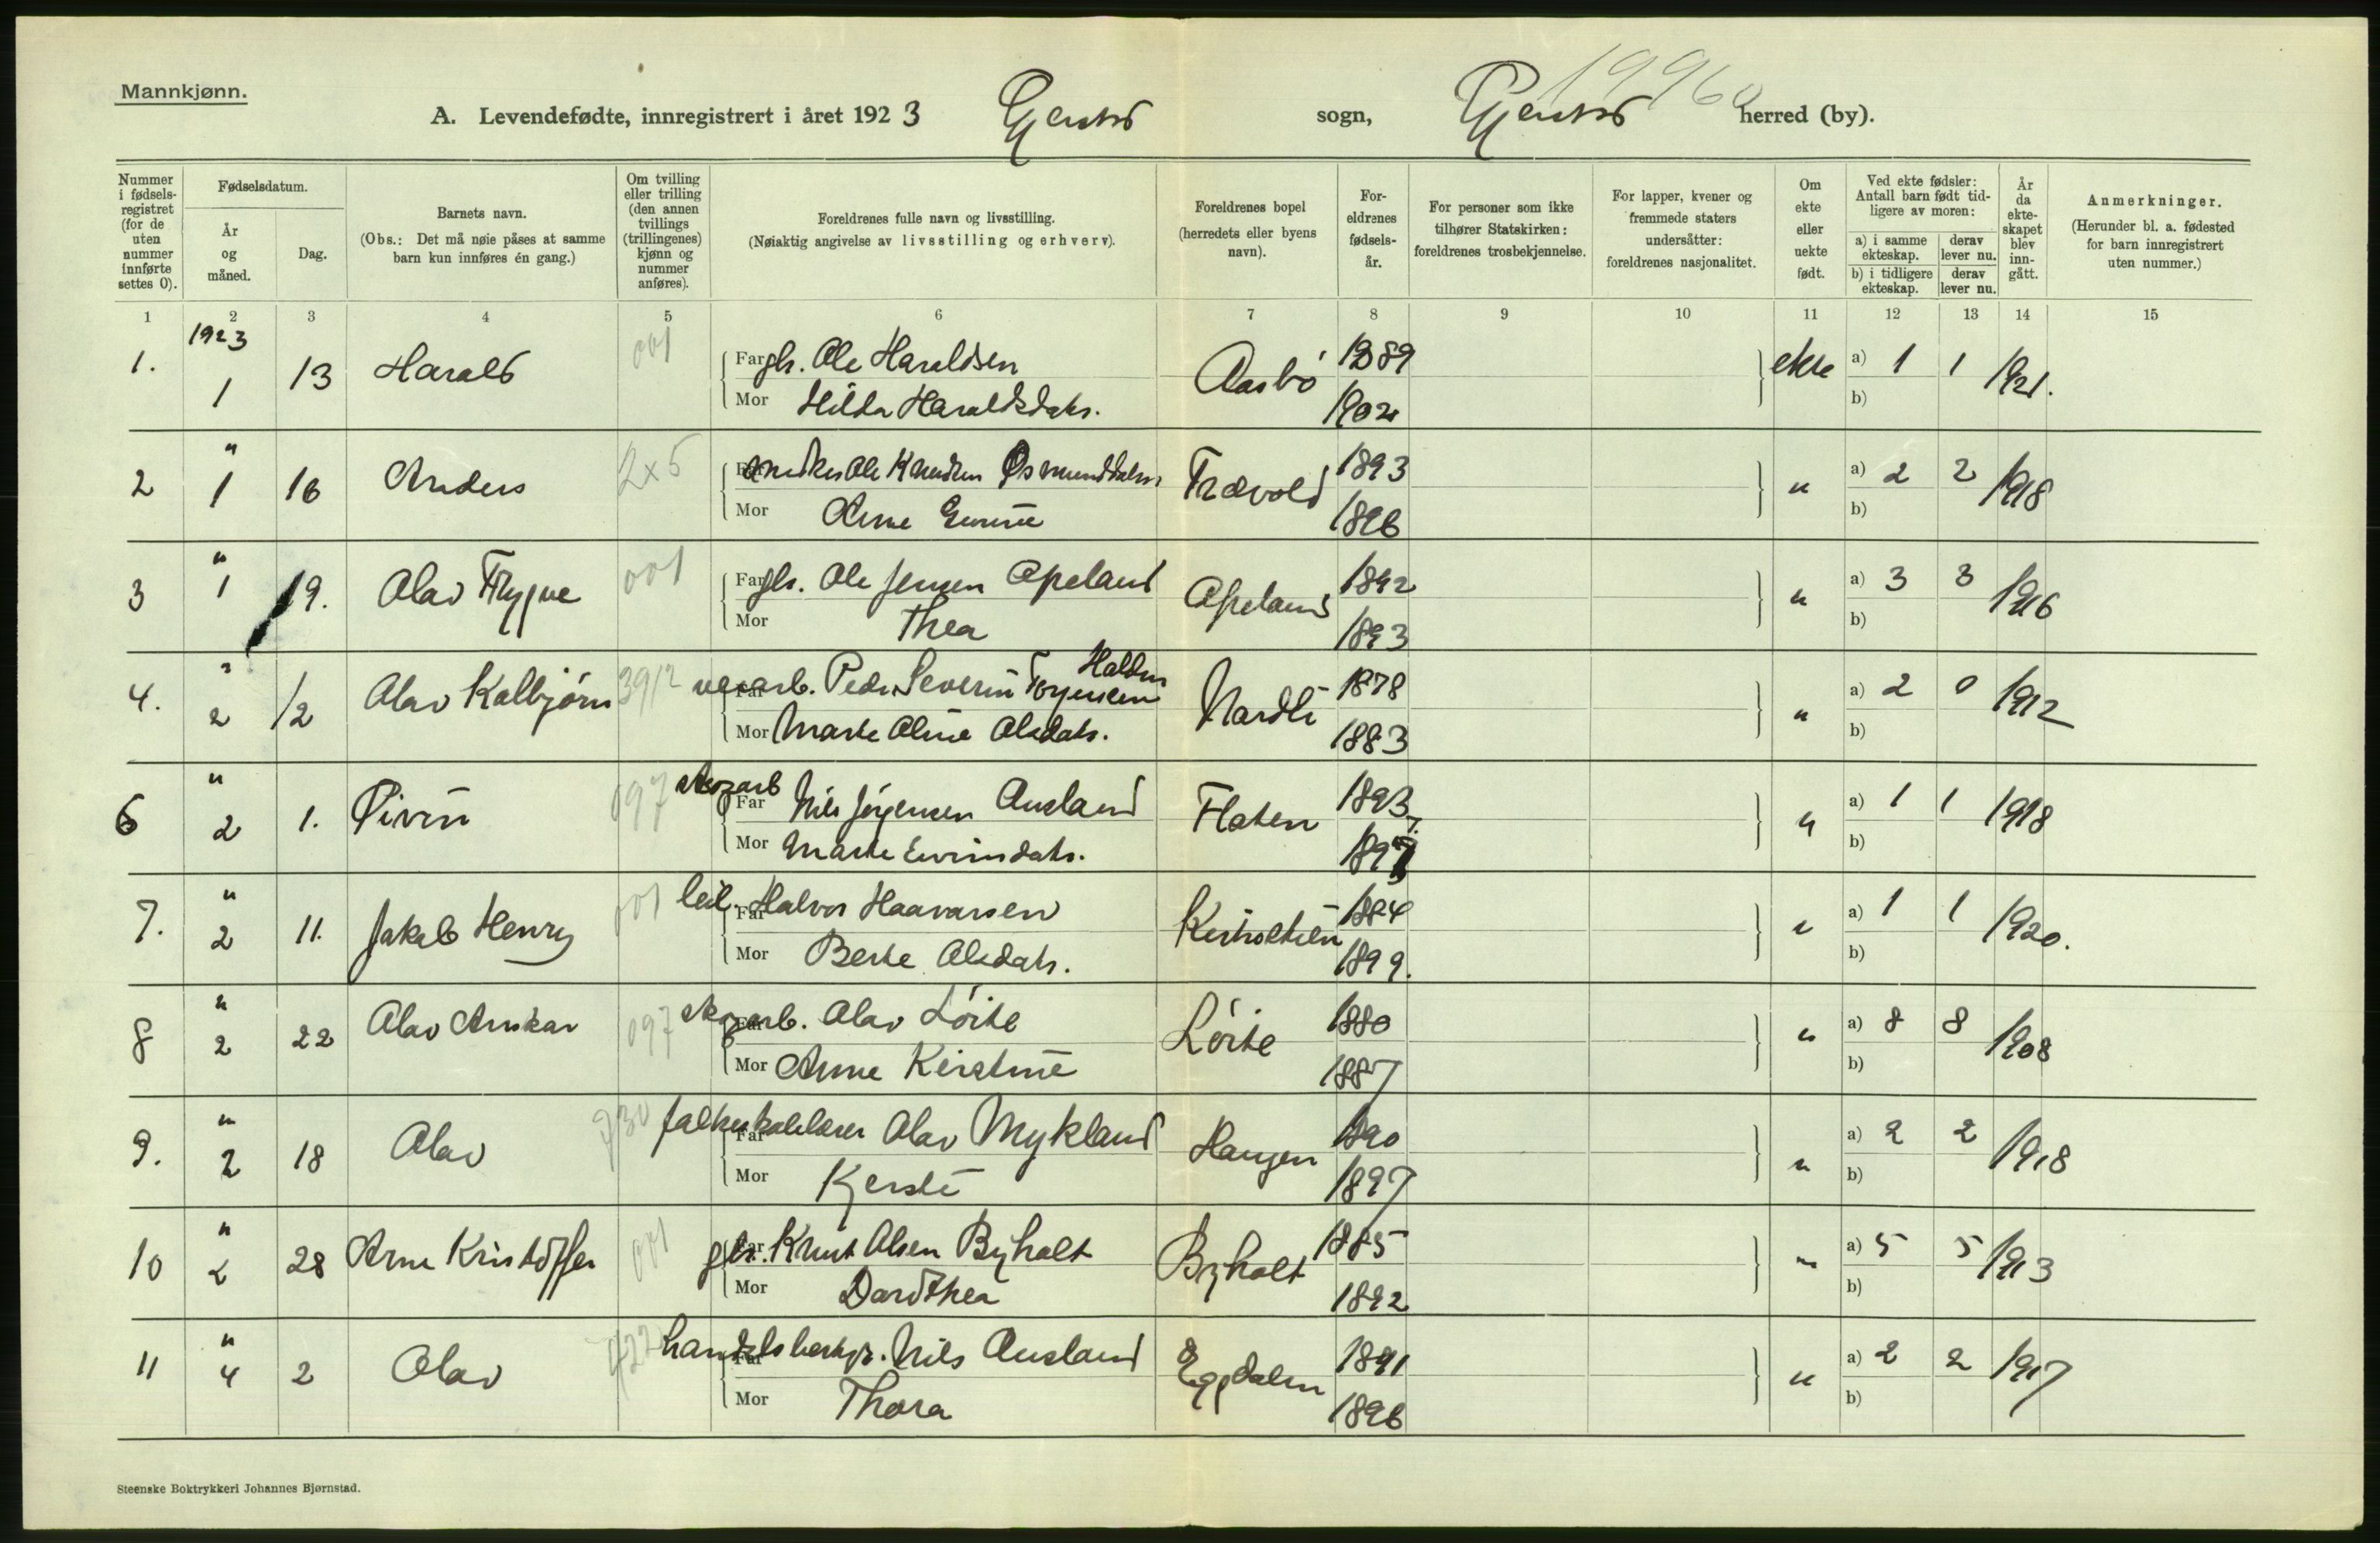 Mannkjønn.
A. Levendefødte, innregistrert i året 1923 Gjerstad sogn, Gjerstad herred (by).
1996
Nummer i fødsels-registret (for de uten nummer innførte settes 0).
Fødselsdatum.
År og måned.
Dag.
Barnets navn.
(Obs.: Det må nøie påses at samme barn kun innføres én gang.)
Om tvilling eller trilling (den annen tvillings (trillingenes) kjønn og nummer anføres).
Foreldrenes fulle navn og livsstilling.
(Nøiaktig angivelse av livsstilling og erhverv).
Foreldrenes bopel (herredets eller byens navn).
For-eldrenes fødsels-år.
For personer som ikke tilhører Statskirken: foreldrenes trosbekjennelse.
For lapper, kvener og fremmede staters undersåtter: foreldrenes nasjonalitet.
Om ekte eller uekte født.
Ved ekte fødsler: Antall barn født tid-ligere av moren:
a) i samme ekteskap.
derav lever nu.
b) i tidligere ekteskap.
derav lever nu.
År da ekte-skapet blev inn-gått.
Anmerkninger.
(Herunder bl. a. fødested for barn innregistrert uten nummer.)
1 2 3 4 5 6 7 8 9 10 11 12 13 14 15
1. 1923 1 13 Harald 001 Far gbr. Ole Haraldsen Aasbö 1889 ekte a) 1 1 1921.
Mor Hilda Haraldsdatr. 1902 b)
2 " 1 16 Anders 2x5 Far Ole Knudsen Osmunddalen Trævold 1893 " a) 2 2 1918
Mor Anne Gurine 1896 b)
3 " 1 19. Olav Trygve 001 Far gbr. Ole Jensen Apeland Apeland 1892 " a) 3 3 1916
Mor Thea 1893 b)
4. " 2 12 Olav Kolbjørn 3912 Far Peder Severin Torjussen Halden Nardli 1878 " a) 2 0 1912
Mor Marte Oline Olsdatr. 1883 b)
6 " 2 1. Øivin 097 skogarb Far Nils Jörgensen Ausland Flaten 1893 " a) 1 1 1918
Mor Marte Eivindsdatr. 1897 b)
7. " 2 11. Jakob Henry 001 leil. Far Halvor Haavarsen 1884 " a) 1 1 1920.
Mor Berte Olsdatr. 1899. b)
8 " 2 22 Olav Anskar 097 skogarb. Far Olav Löite Löite 1880 " a) 8 8 1908
Mor Anne Kirstine 1887 b)
9. " 2 18 Olav 730 Far folkeskolelærer Olav Mykland Haugen 1890 " a) 2 2 1918
Mor Kjersti 1897 b)
10 " 2 28 Arne Kristoffer 001 Far gbr. Knut Olsen Byholt Byholt 1885 " a) 5 5 1913
Mor Dorothea 1892 b)
11 " 4 2 Olav 422 Far handelsbestyr. Nils Ausland Eggdalen 1891 " a) 2 2 1917
Mor Thora 1896 b)
Steenske Boktrykkeri Johannes Bjørnstad.